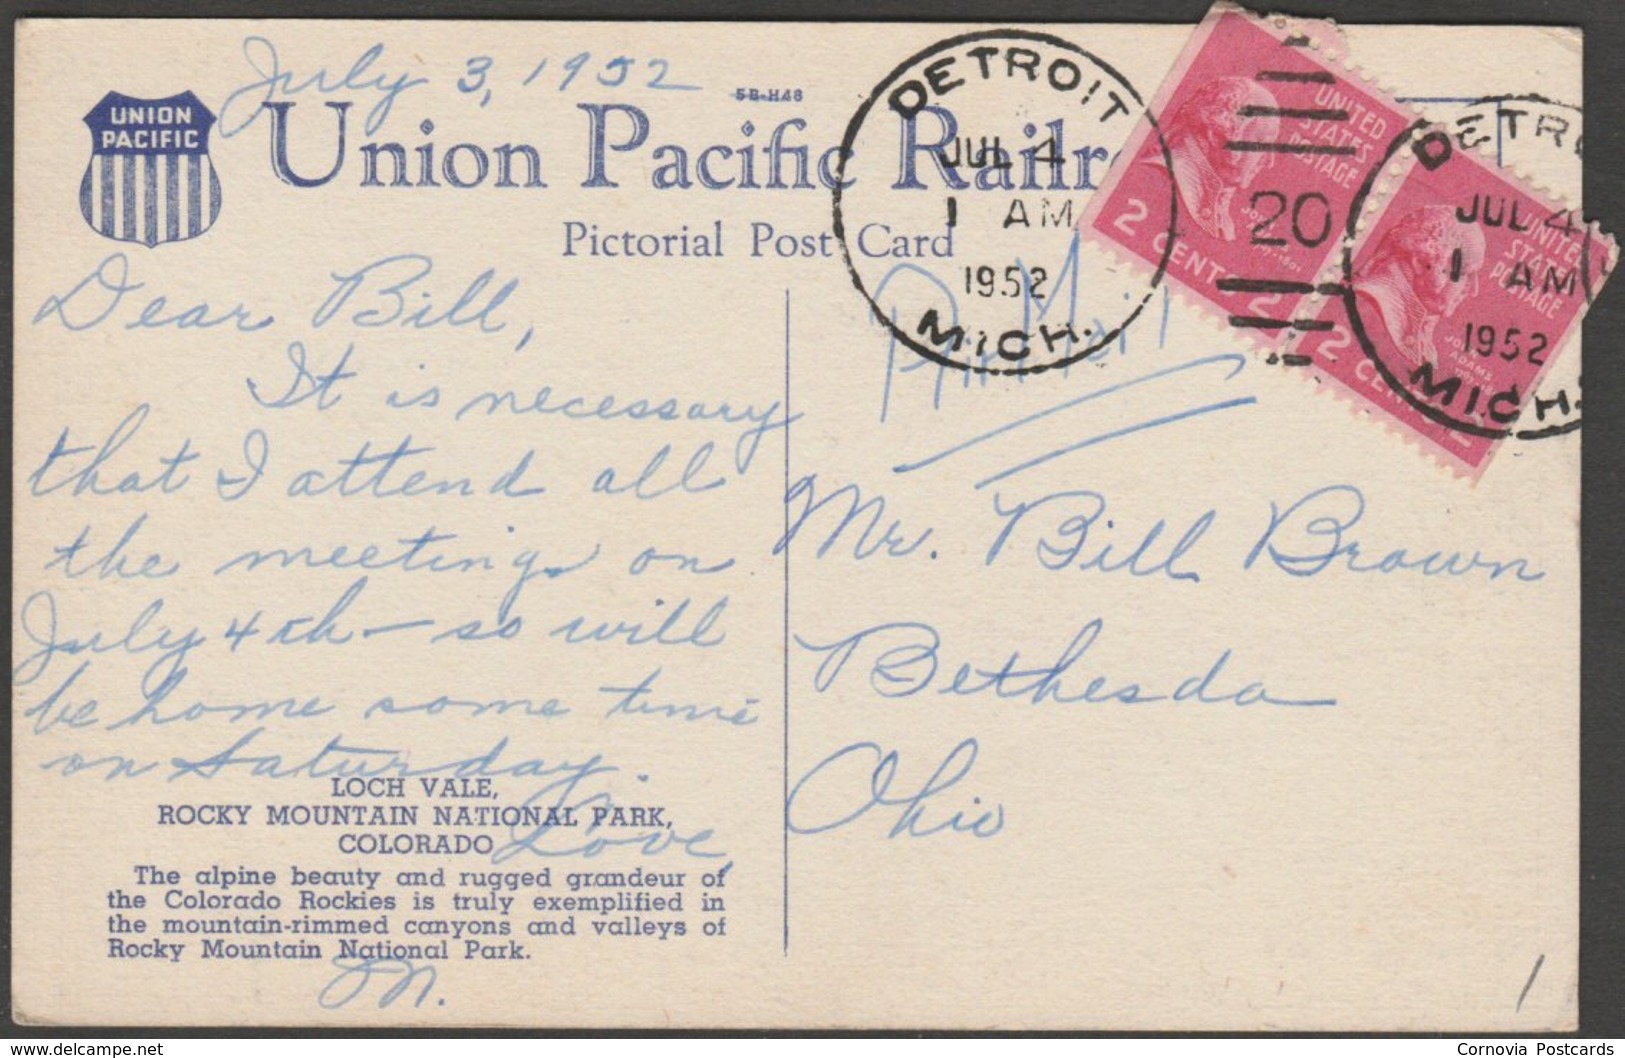 July 3, 1952
UNION
PACIFIC
5B-H48
Union Pacific Railr
Pictorial Post Card
DETROIT
JUL 4
1 AM
1952
MICH.
UNITED
STATES
POSTAGE
2 CENTS 2
20
DETR
JUL 4
1 AM
1952
MICH.
UNITED
STATES
POSTAGE
JOHN
ADAMS
2 CENTS 2
Dear Bill,
It is necessary
that I attend all
the meetings on
July 4th - so will
be home some time
on Saturday.
Love,
M.
Air Mail
Mr. Bill Brown
Bethesda
Ohio
LOCH VALE,
ROCKY MOUNTAIN NATIONAL PARK,
COLORADO
The alpine beauty and rugged grandeur of
the Colorado Rockies is truly exemplified in
the mountain-rimmed canyons and valleys of
Rocky Mountain National Park.
1
delcampe.net
Cornovia Postcards